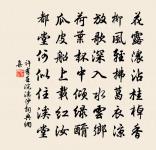 花露濃沾桂棹香
柳風輕拂葛衣涼
放歌深入水雲鄉
荷葉杯中傾綠醑
瓜皮船上載紅妝
都堂何似住溪堂
許有壬浣溪沙